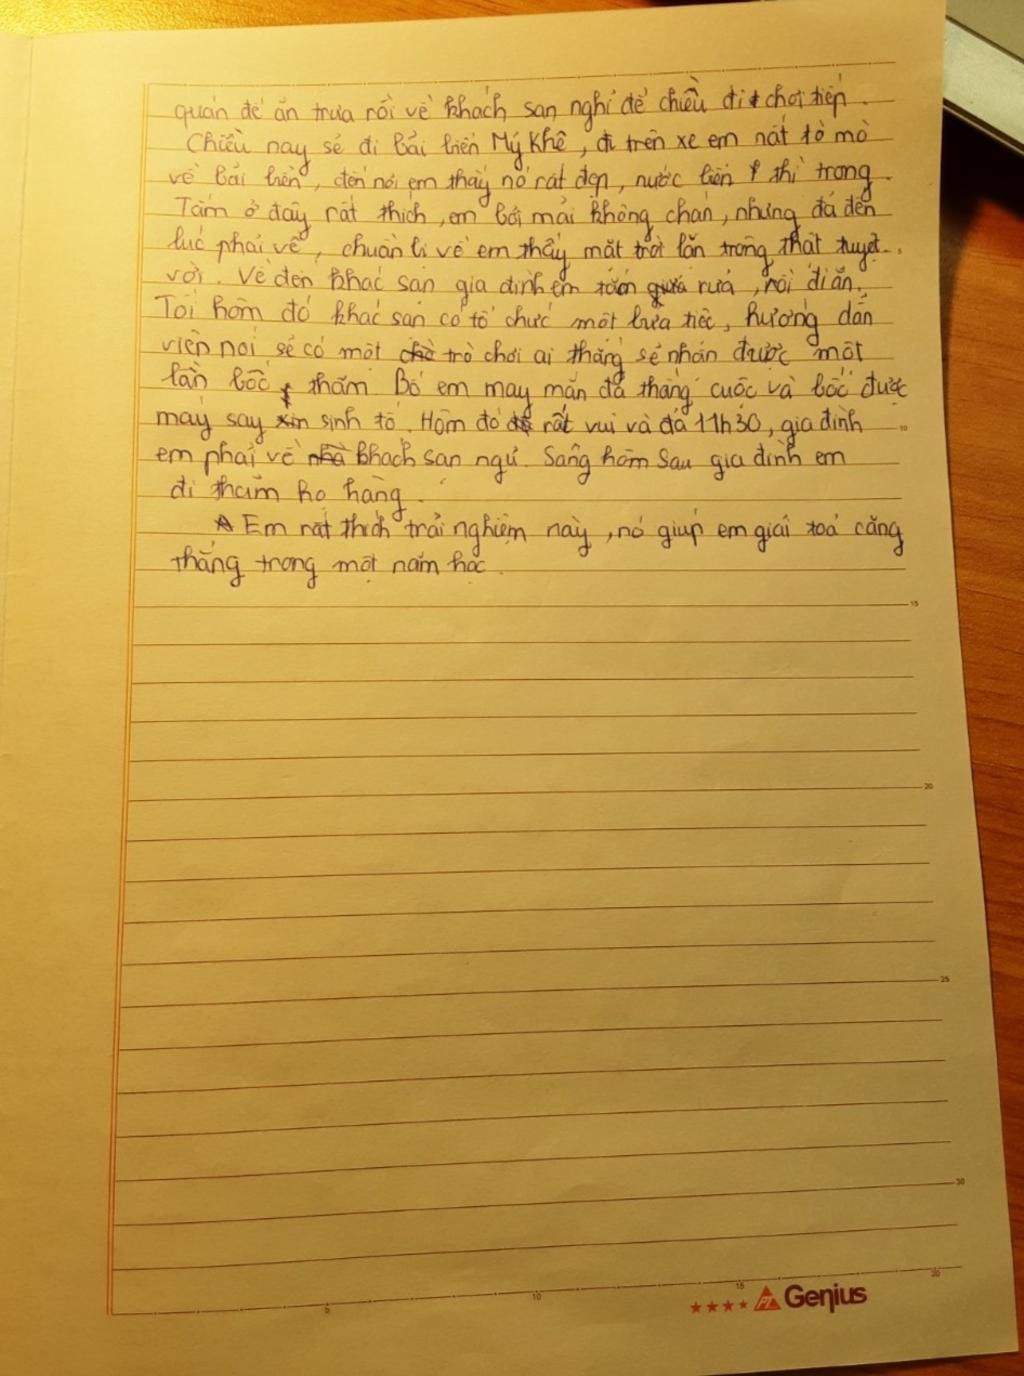 quán để ăn trưa rồi về khách sạn nghỉ để chiều đi chơi tiếp.
Chiều nay sẽ đi bãi biển Mỹ Khê, đi trên xe em rất tò mò
về bãi biển, đến nơi em thấy nó rất đẹp, nước biển thì trong.
Tắm ở đây rất thích, em bơi mãi không chán, nhưng đã đến
lúc phải về, chuẩn bị về em thấy mặt trời lặn trông thật tuyệt
vời. Về đến khác sạn gia đình em rửa, rồi đi ăn.
Tối hôm đó khác sạn có tổ chức một bữa tiệc, hướng dẫn
viên nói sẽ có một trò chơi ai thắng sẽ nhận được một
lần bốc thăm. Bố em may mắn đã thắng cuộc và bốc được
máy say sinh tố. Hôm đó rất vui và đã 11h30, gia đình
em phải về khách sạn ngủ. Sáng hôm sau gia đình em
đi thăm họ hàng.
Em rất thích trải nghiệm này, nó giúp em giải toả căng
thẳng trong một năm học.
10
15
20
25
30
5 10 15 20
PT Genius